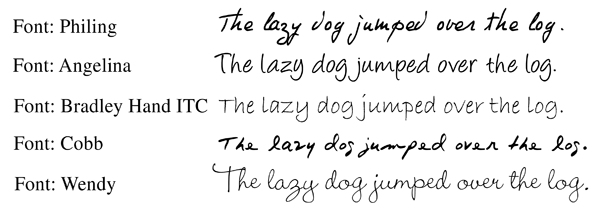 Font: Philing The lazy dog jumped over the log.
Font: Angelina The lazy dog jumped over the log.
Font: Bradley Hand ITC The lazy dog jumped over the log.
Font: Cobb The lazy dog jumped over the log.
Font: Wendy The lazy dog jumped over the log.